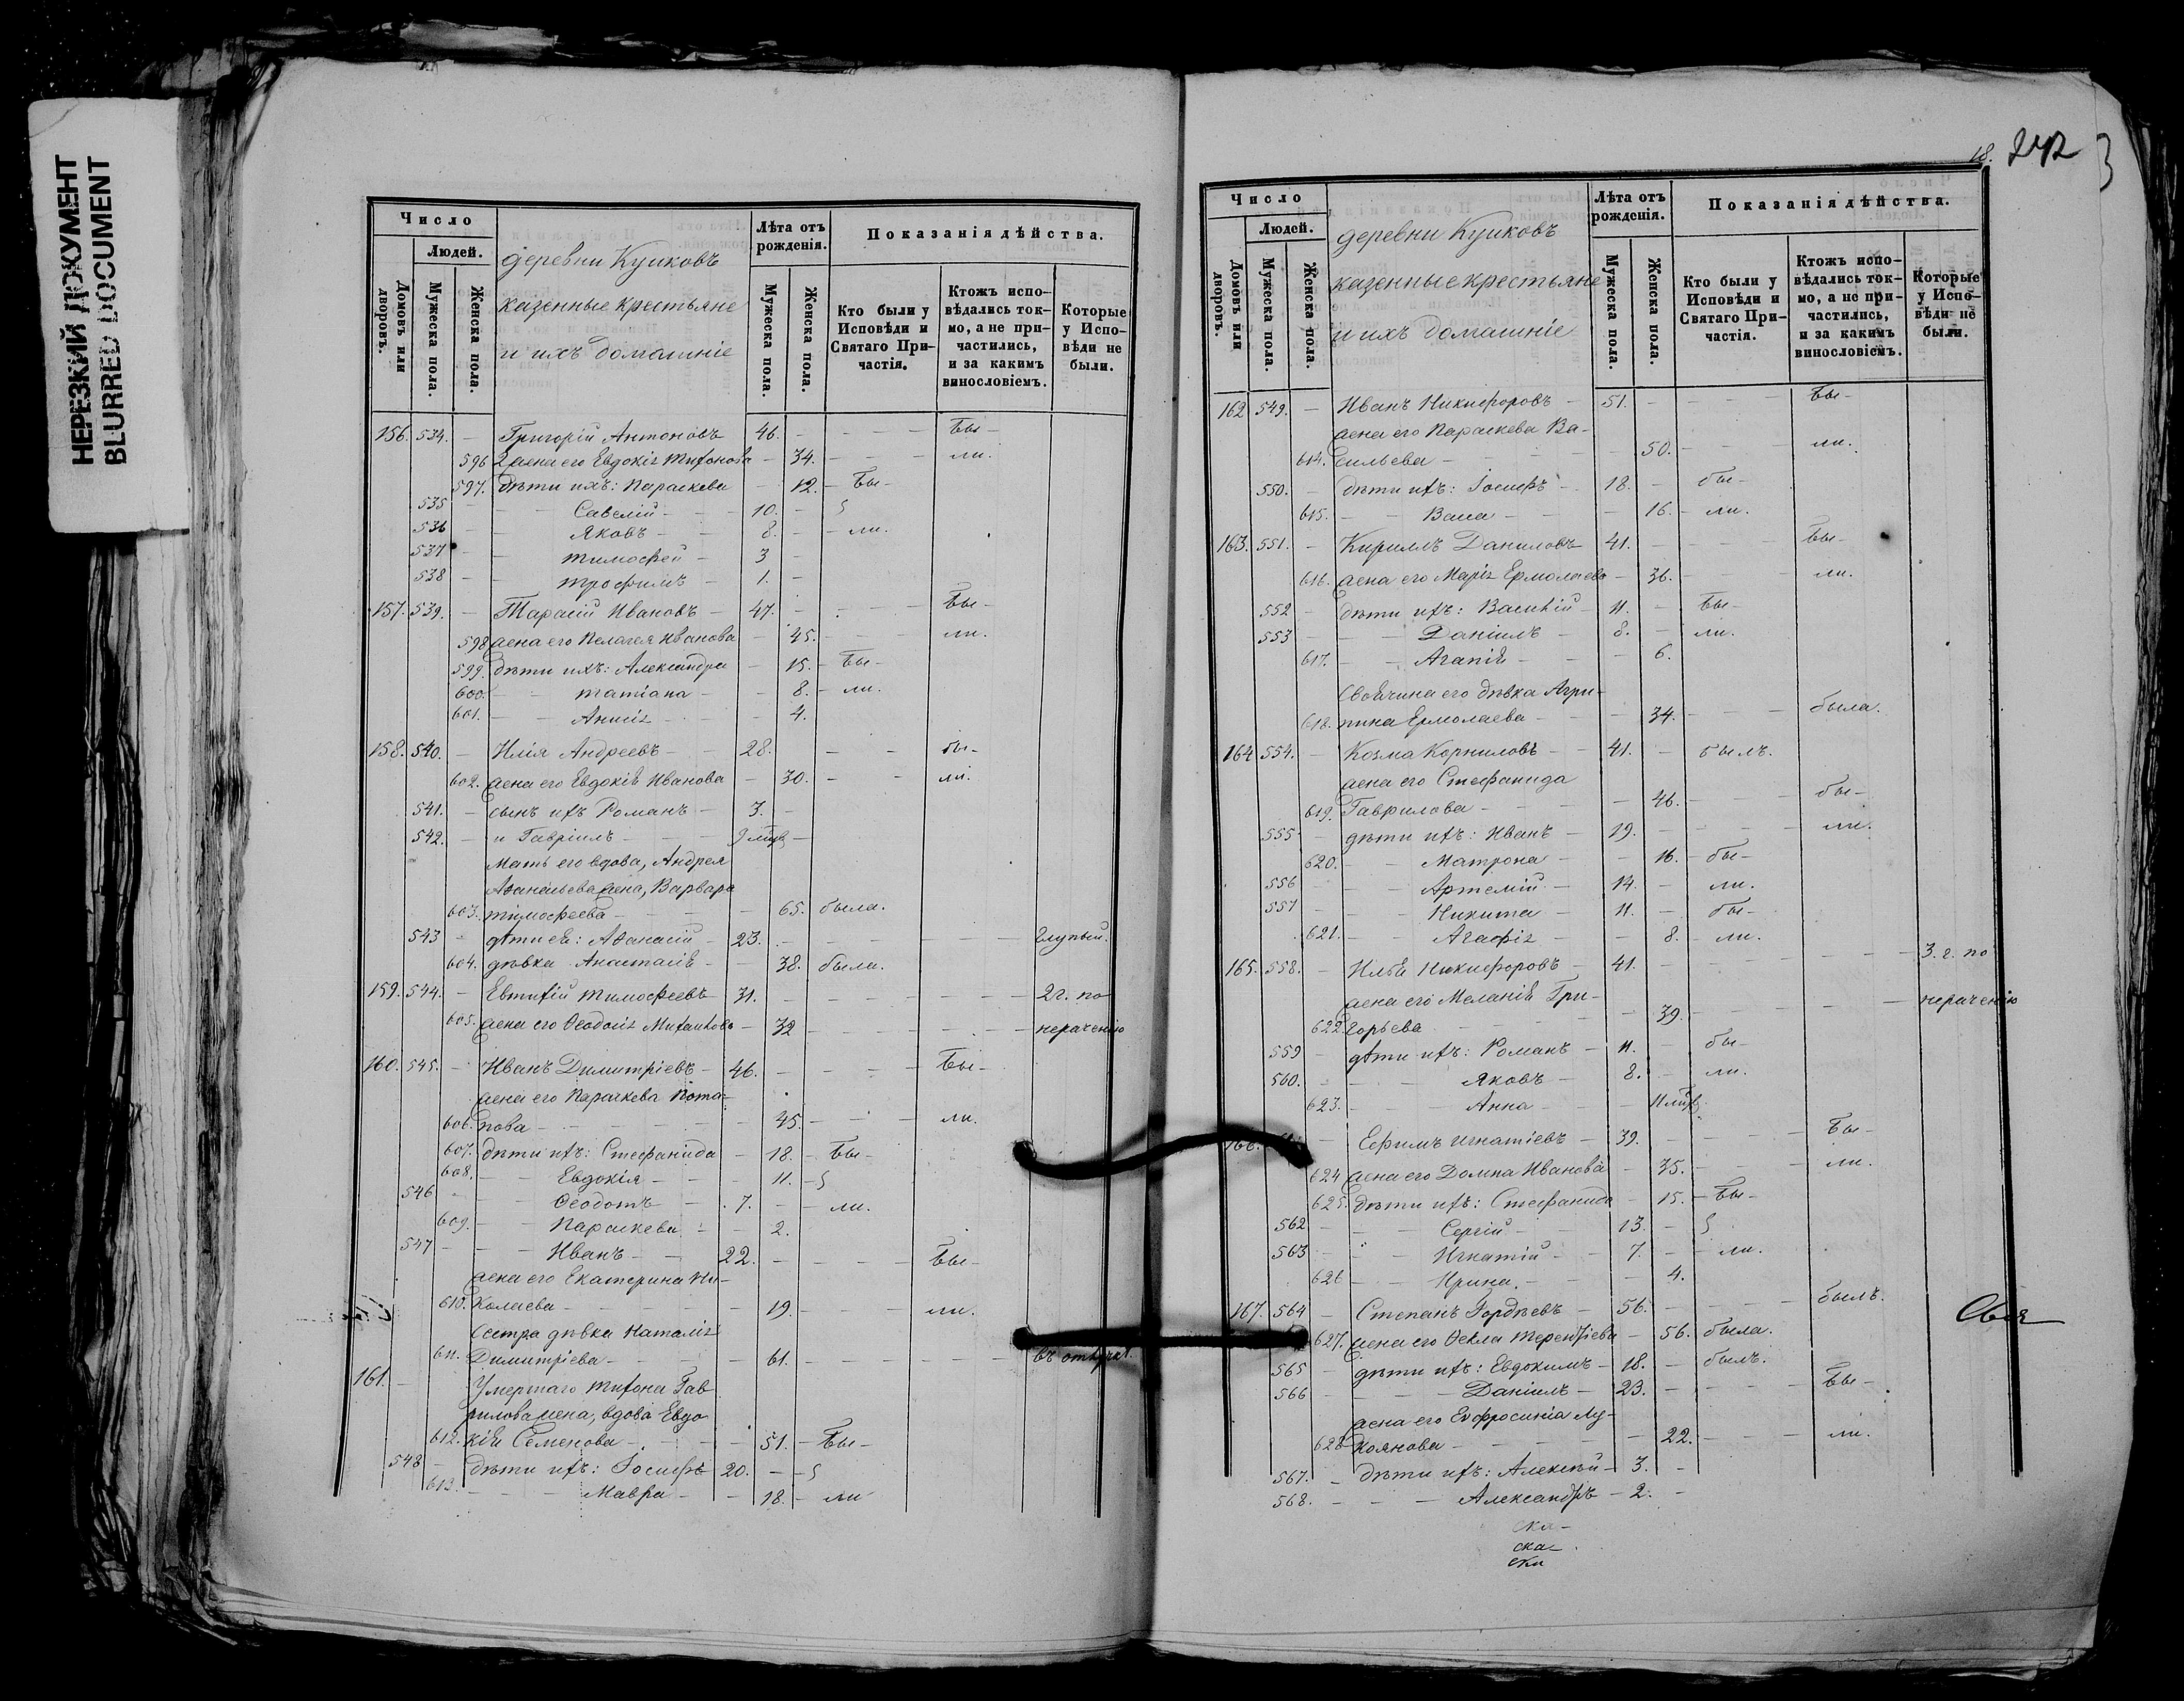 НЕРЕЗКИЙ ДОКУМЕНТ
BLURRED DOCUMENT
Число
Людей.
Домовъ или дворовъ.
Мужеска пола.
Женска пола.
деревни Кушковъ
казенные крестьяне
и ихъ домашніе
Лѣта отъ рожденія.
Мужеска пола.
Женска пола.
Показанія дѣйства.
Кто были у Исповѣди и Святаго Причастія.
Ктожъ исповѣдались токмо, а не причастились, и за какимъ винословіемъ.
Которые у Исповѣди не были.
156. 534. – Григорій Антоновъ 46. – – – бы–
596 2 жена его Евдокія Тихонова – 34. – – – ли.
597. дѣти ихъ: Параскева – 12. – бы–
535 – – Савелій – – 10. –
536 – – Яковъ – – 8. – – ли.
537 – – Тимоѳей – 3
538 – – Трофимъ – 1. –
157. 539. – Тарасій Ивановъ – 47. – – – бы–
598 жена его Пелагея Иванова – 45. ли.
599. дѣти ихъ: Александра – 15. – бы–
600. – – Татіана – – 8. – ли.
601. – – Анисія – – 4.
158. 540. – Илія Андреевъ – – 28. – – бы–
602. жена его Евдокія Иванова – 30. – – ли.
541. – сынъ ихъ Романъ – 3. –
542. – и Гавріилъ – – 9 мцв –
Мать его вдова, Андрея
Аѳанасьева жена, Варвара
603. Тимоѳеева – – – 65. была.
543 – дѣти ея: Аѳанасій – 23. – – – – – глупый.
604. дѣвка Анастасія – – 38. была.
159. 544. – Евтихій Тимоѳеевъ – 31. – – – – – 2 г. по
605. жена его Ѳеодосія – 32 – – – – нераченію
160. 545. – Иванъ Димитріевъ – 46. – – – – бы–
жена его Параскева Пота–
606. пова – – – – 45. – – – ли.
607. дѣти ихъ: Стефанида – 18. – бы–
608. – – Евдокія – – 11. –
546 – – Ѳеодотъ – 7. – – ли.
609. – – Параскева – – 2.
547 – – Иванъ – – 22. – – – – бы–
жена его Екатерина Ни–
610. колаева – – – – 19. – – – ли.
Сестра дѣвка Наталія
611. Димитріева – – – 61. – – – – –
161. – Умершаго Тихона Гав
рилова жена, вдова Евдо
612. кія Семенова – – – 51. – бы–
548 – дѣти ихъ: Іосифъ – 20. – –
613. – – – Мавра – – 18. – ли
18. 242
3
Число
Людей.
Домовъ или дворовъ.
Мужеска пола.
Женска пола.
деревни Кушковъ
казенные крестьяне
и ихъ домашніе
Лѣта отъ рожденія.
Мужеска пола.
Женска пола.
Показанія дѣйства.
Кто были у Исповѣди и Святаго Причастія.
Ктожъ исповѣдались токмо, а не причастились, и за какимъ винословіемъ.
Которые у Исповѣди не были.
162 549. – Иванъ Никифоровъ – 51. – – – бы–
жена его Параскева Ва–
614. сильева – – – 50. – – – ли.
550. – дѣти ихъ: Іосифъ – 18. – бы–
615. – – Васса – – – 16. – ли.
163. 551. – Кириллъ Даниловъ 41. – – – бы–
616. жена его Марія Ермолаева – 36. – – ли.
552 – дѣти ихъ: Василій – 11. – бы–
553 – – – Даніилъ – 8. – ли.
617. – – Агапія – – – 6.
Своячина его дѣвка Агри–
618. пина Ермолаева – – – 34. – – – была.
164 554. – Козма Корниловъ – – 41. – былъ.
жена его Стефанида
619. Гаврилова – – – 46. – – – бы–
555 – дѣти ихъ: Иванъ – 19. – – – – ли.
620. – – Матрона – – 16. – бы–
556 – – Артемій – 14. – ли.
557 – – Никита – 11. – бы–
621. – – Агафія – – 8. – ли.
165. 558. – Илья Никифоровъ – 41. – – – – – 3. г. по
жена его Меланія Гри–
622. горьева – – – 39. – – – нераченію
559 – дѣти ихъ: Романъ – 11. – бы–
560. – – – Яковъ – 8. – ли.
623. – – Анна – – 11 мцв.
166. – Ефимъ Игнатіевъ – 39. – – – бы–
624 жена его Домна Иванова – 35. – – – ли.
625. дѣти ихъ: Стефанида – 15. – бы–
562 – – Сергій – 13. –
563 – – Игнатій – 7. – – ли.
626 – – Ирина. – – – 4.
167. 564 – Степанъ Гордѣевъ – 56. – – – – былъ.
627. жена его Ѳекла Терентіева – 56. была.
565 – дѣти ихъ: Евдокимъ – 18. – былъ.
566 – – – Даніилъ – 23. – – – – бы–
жена его Евфросинія Лу–
628 кьянова – – – – 22. – – – ли.
567. – дѣти ихъ: Алексѣй – 3. –
568. – – – Александръ – 2. –
ска–
ска–
ски